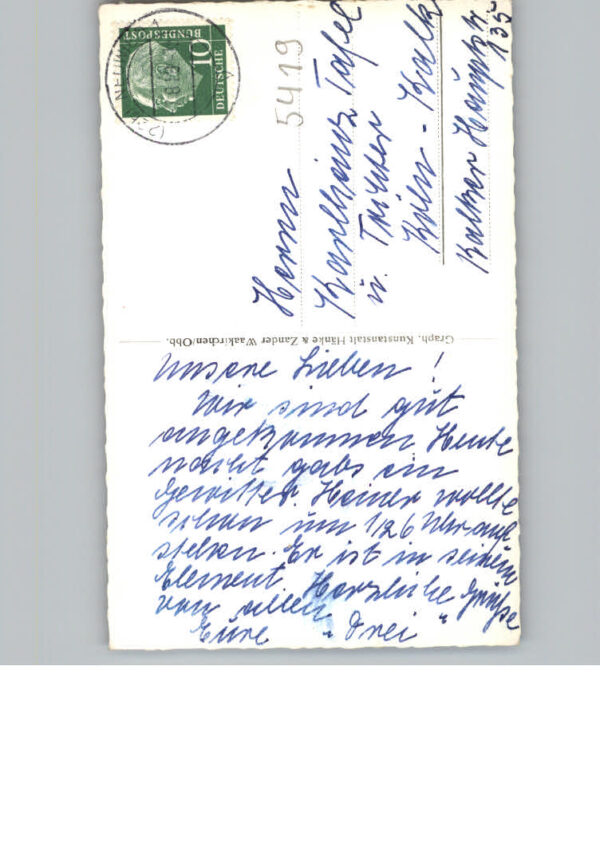 DEUTSCHE
BUNDESPOST
10
5419
Herrn
Karlheinz Tafel
u. Töchter
Köln-Kalk
Kalker Hauptstr.
135
Graph. Kunstanstalt Hänke & Zander Waakirchen/Obb.
Unsere Lieben!
Wir sind gut
angekommen Heute
nacht gabs ein
Gewitter. Heiner wollte
schon um 1/26 Uhr auf
stehen. Er ist in seinem
Element. Herzliche Grüße
von allen
Eure "drei"